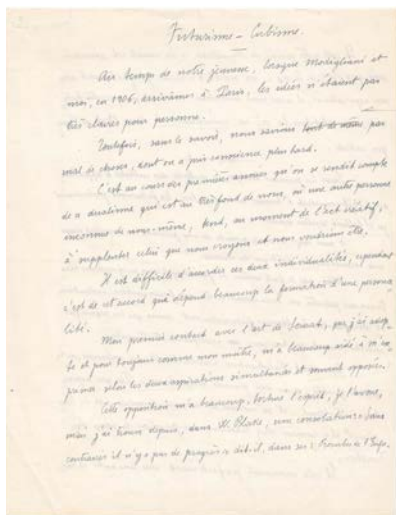 Futurisme – Cubisme.
Au temps de notre jeunesse, lorsque Modigliani et
moi, en 1906, arrivâmes à Paris, les idées n'étaient pas
très claires pour personne.
Toutefois, sans le savoir, nous savions tout de même pas
mal de choses, dont on a pris conscience plus tard.
C'est au cours des premières années qu'on se rendit compte
de ce dualisme qui est au tréfond de nous, où une autre personne
inconnue de nous-même, tend, au moment de l'act créatif,
à supplanter celui que nous croyons et nous voudrions être.
Il est difficile d'accorder ces deux individualités, cependant
c'est de cet accord qu'à dépend beaucoup la formation d'une persona
lité.
Mon premier contact avec l'art de Seurat, que j'ai adop
té et pour toujours comme mon maître, m'a beaucoup aidé à m'ex
primer selon les deux aspirations simultanées et souvent opposées.
Cette opposition m'a beaucoup torturé l'esprit, je l'avoue,
mais j'ai trouvé depuis, dans W. Blake, une consolation: Sans
contraires il n'y a pas de progrès a dit-il, dans ses: Proverbes de l'Enfer.